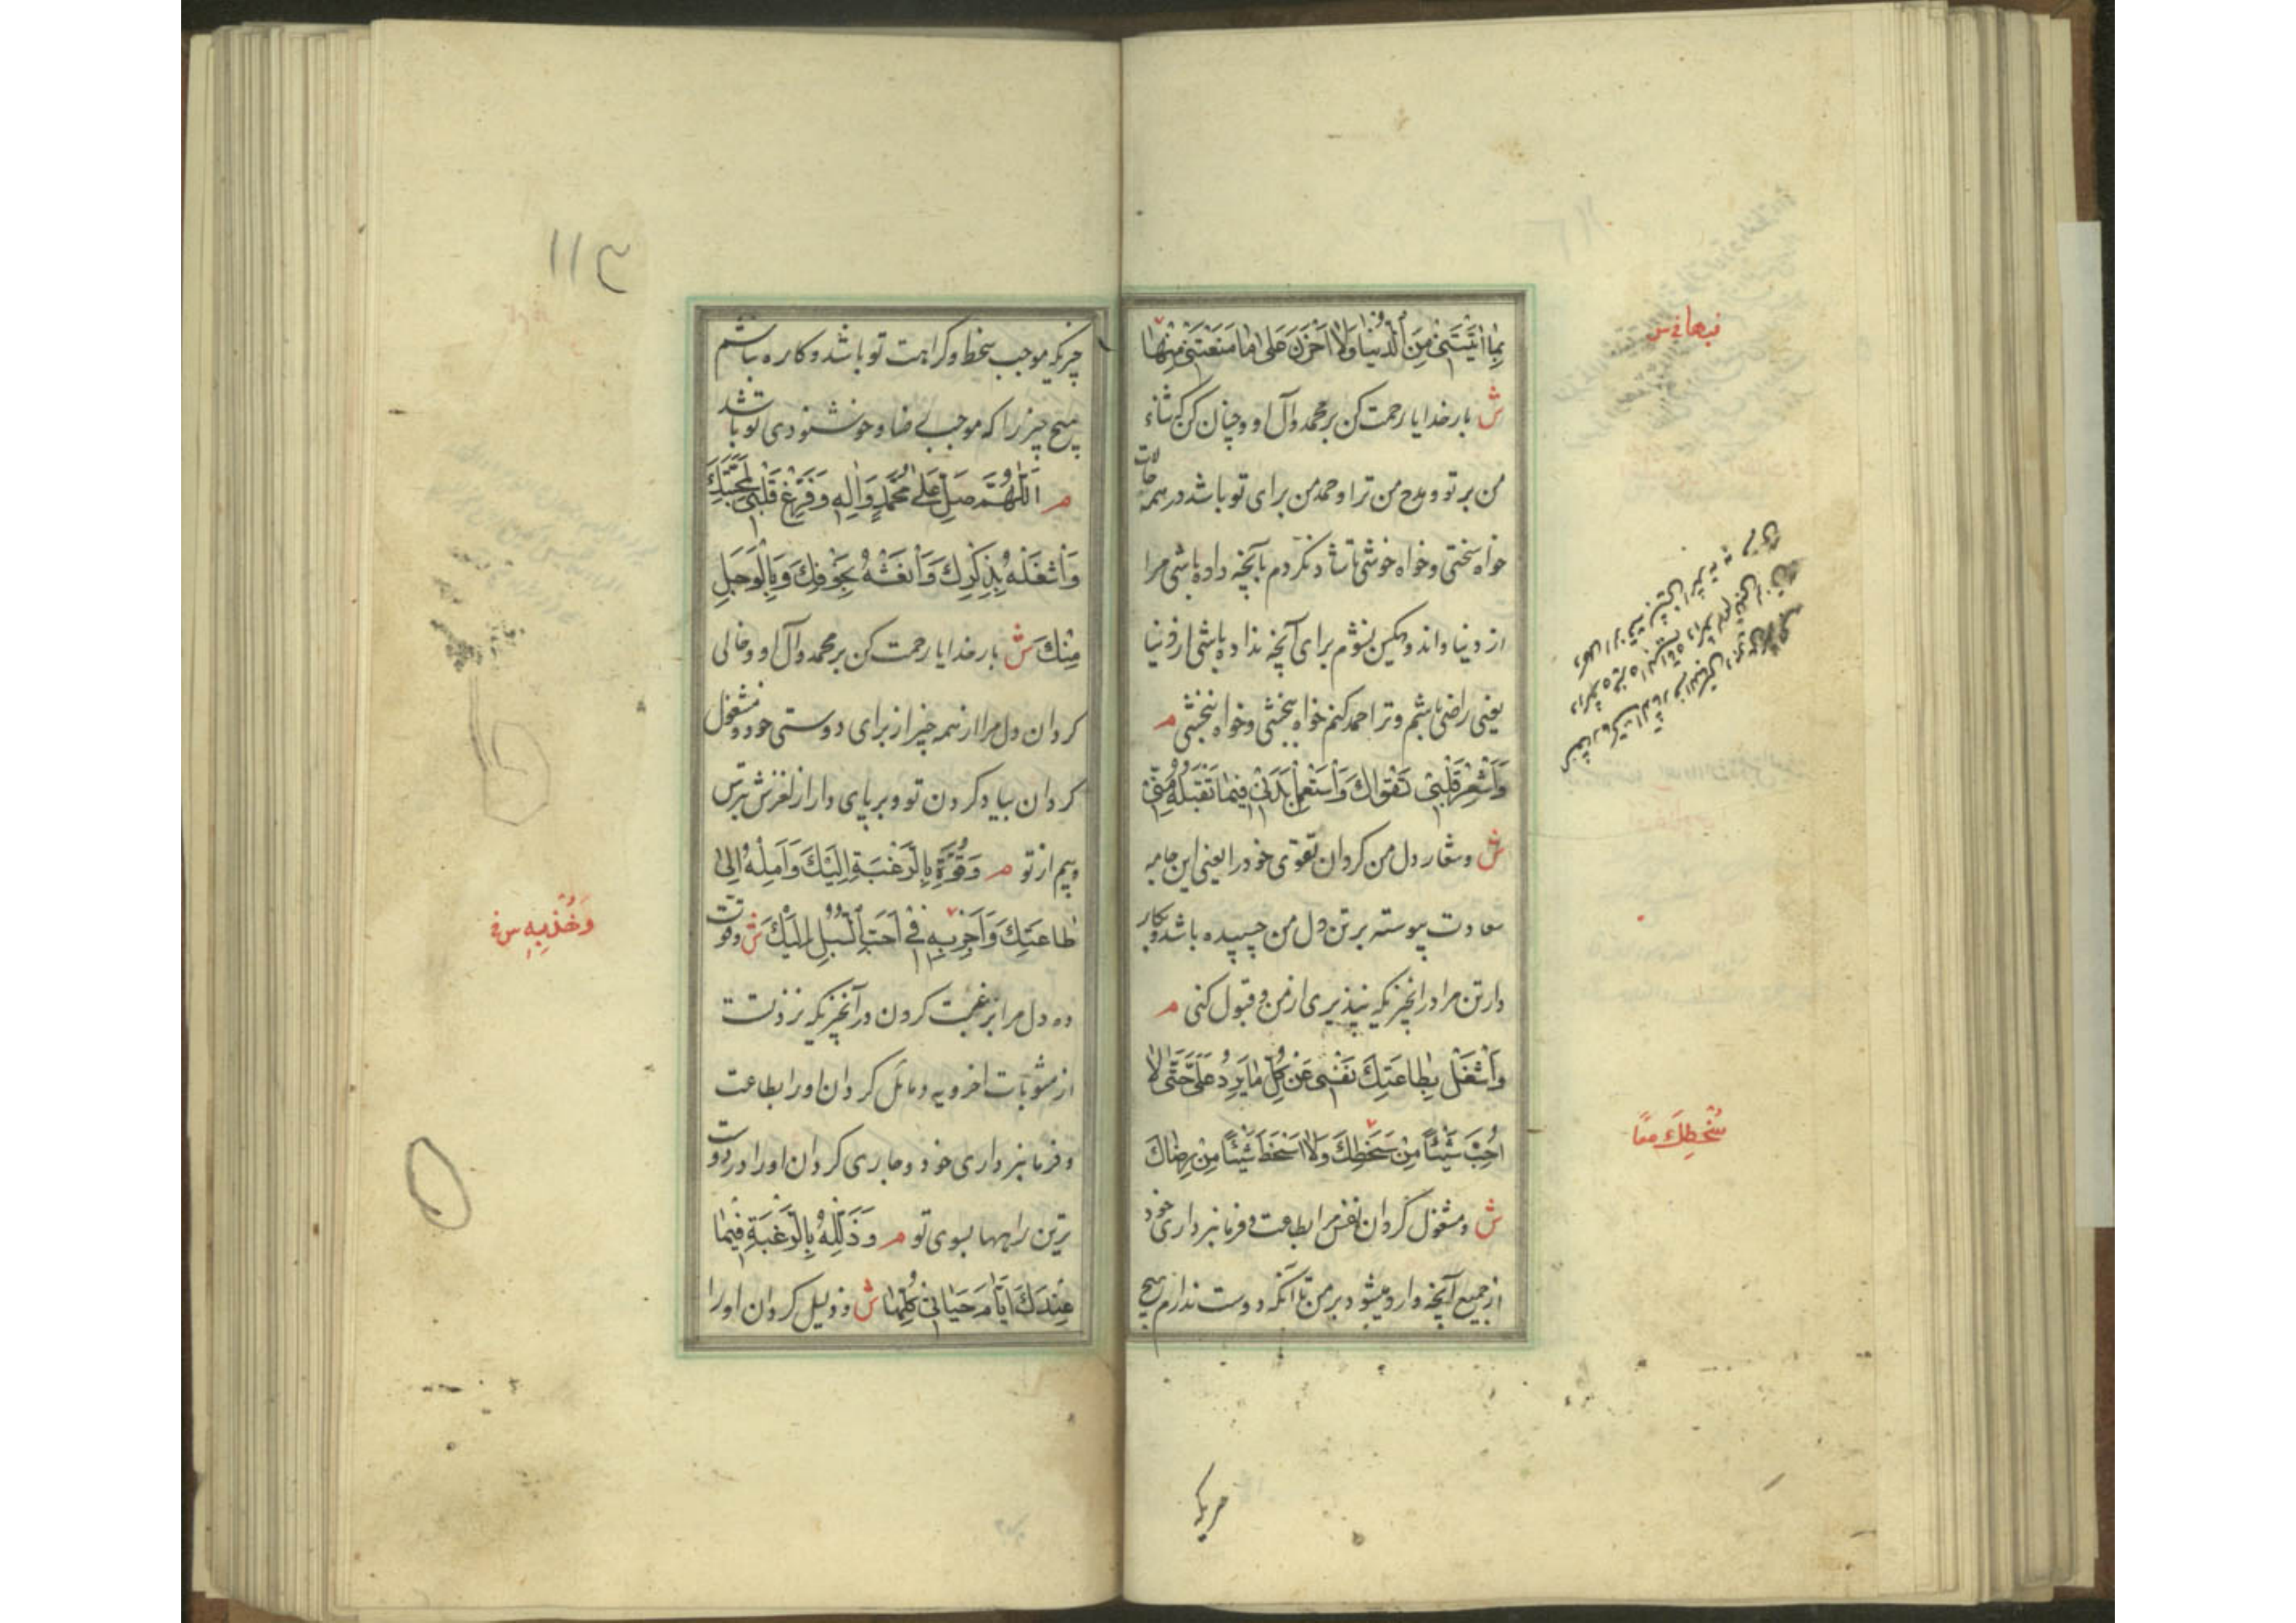 بِمَا اٰتَيْتَنِي مِنَ الدُّنْيَا وَلَا اَحْزَنَ عَلٰى مَا مَنَعْتَنِي مِنْهَا
ش بار خدایا رحمت کن بر محمد و آل او و چنان کن که ثناء
من بر تو و مدح من ترا و حمد من برای تو باشد در همه حالات
خواه سختی و خواه خوشی تا شاد نکردم بآنچه داده باشی مرا
از دنیا و اندوهگین نشوم برای آنچه نداده باشی از دنیا
یعنی راضی باشم و ترا حمد کنم خواه ببخشی و خواه نبخشی م
وَاَشْعِرْ قَلْبِي تَقْوَاكَ وَاسْتَعْمِلْ بَدَنِي فِيمَا تَقْبَلُهُ مِنِّي
ش و شعار دل من کردان تقوی خود را یعنی این جامه
سعادت پیوسته بر تن دل من چسپیده باشد و بکار
دار تن مرا در انچیزیکه بپذیری از من و قبول کنی م
وَاشْغَلْ بِطَاعَتِكَ نَفْسِي عَنْ كُلِّ مَا يَرِدُ عَلَيَّ حَتّٰى لَا
اُحِبَّ شَيْئًا مِنْ سَخَطِكَ وَلَا اَسْخَطَ شَيْئًا مِنْ رِضَاكَ
ش و مشغول کردان نفس مرا بطاعت و فرمانبرداری خود
از جمیع آنچه وارد میشود بر من تا آنکه دوست ندارم هیچ
فيها في س
سُخْطِكَ معًا
۱۱۳
چیزیکه موجب سخط و کراهت تو باشد و کاره نباشم
هیچ چیز را که موجب رضا و خوشنودی تو باشد
م اَللّٰهُمَّ صَلِّ عَلٰى مُحَمَّدٍ وَاٰلِهِ وَفَرِّغْ قَلْبِي لِمَحَبَّتِكَ
وَاشْغَلْهُ بِذِكْرِكَ وَانْعَشْهُ بِخَوْفِكَ وَبِالْوَجَلِ
مِنْكَ ش بار خدایا رحمت کن بر محمد و آل او و خالی
کردان دل مرا از همه چیز از برای دوستی خود و مشغول
کردان بیاد کردن تو و برپای دار از لغزش بترس
و بیم از تو م وَقَوِّهِ بِالرَّغْبَةِ اِلَيْكَ وَاَمِلْهُ اِلٰى
طَاعَتِكَ وَاَجْرِ بِهِ فِي اَحَبِّ السُّبُلِ اِلَيْكَ ش و قوت
ده دل مرا برغبت کردن در آنچیزیکه نزد تست
از مثوبات اخرویه و مائل کردان او را بطاعت
و فرمانبرداری خود و جاری کردان او را در دوست
ترین راهها بسوی تو م وَذَلِّلْهُ بِالرَّغْبَةِ فِيمَا
عِنْدَكَ اَيَّامَ حَيَاتِي كُلِّهَا ش و ذلیل کردان او را
وَخُذْ بِهِ س في